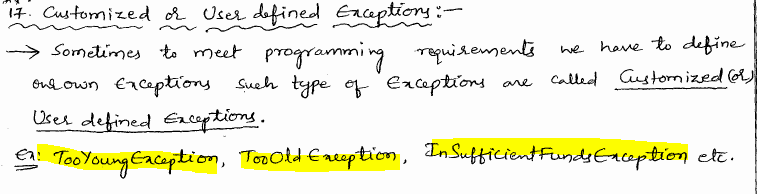 17. Customized or User defined Exceptions:-
→ Sometimes to meet programming requirements we have to define
our own Exceptions such type of Exceptions are called Customized (or)
User defined Exceptions.
Ex: TooYoungException, TooOldException, InSufficientFundsException etc.